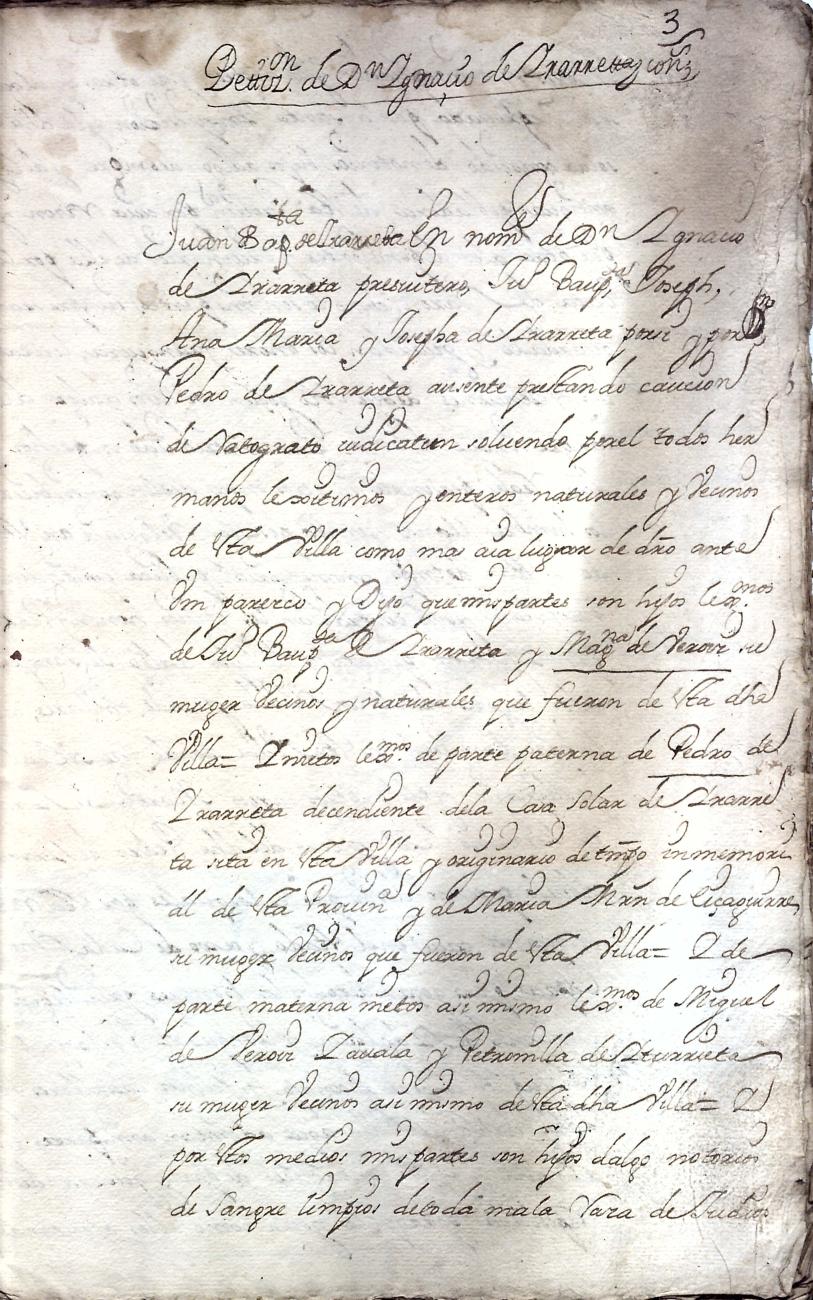 3
Pettizon. de Dn Ignacio de Irarreta y cons.
Juan Bapta. de Irarreta En nome de Dn Ignacio
de Irarreta presvitero, Juo Baupta, Joseph,
Ana Maria y Josepha de Irarreta porsi y por Dn
Pedro de Irarreta ausente prestando caucion
de Ratograto iudicatun soluendo porel todos her
manos lexitimos y enteros naturales y Vecinos
de esta Villa como mas aia lugar de dro ante
Vm parezco y Digo que mis partes son hijos lexmos.
de Juo Baupta de Irarreta y Magna de Verovi su
muger Vecinos y naturales que fueron de esta dha
Villa= I nietos lexmos. de parte paterna de Pedro de
Irarreta decendiente dela Casa Solar de Irarre
ta sita en esta Villa y originario de tmpo inmemori
al de esta Provina y de Maria Mrn de Eiçaguirre
su muger Vecinos que fueron de esta Villa= I de
parte materna nietos asimismo lexmos. de Miguel
de Verovi Zavala y Petronilla de Iturrieta
su muger Vecinos asimismo de esta dha Villa= I
por estos medios mis partes son hijos dalgo notorios
de Sangre limpios detoda mala Raza de Judios